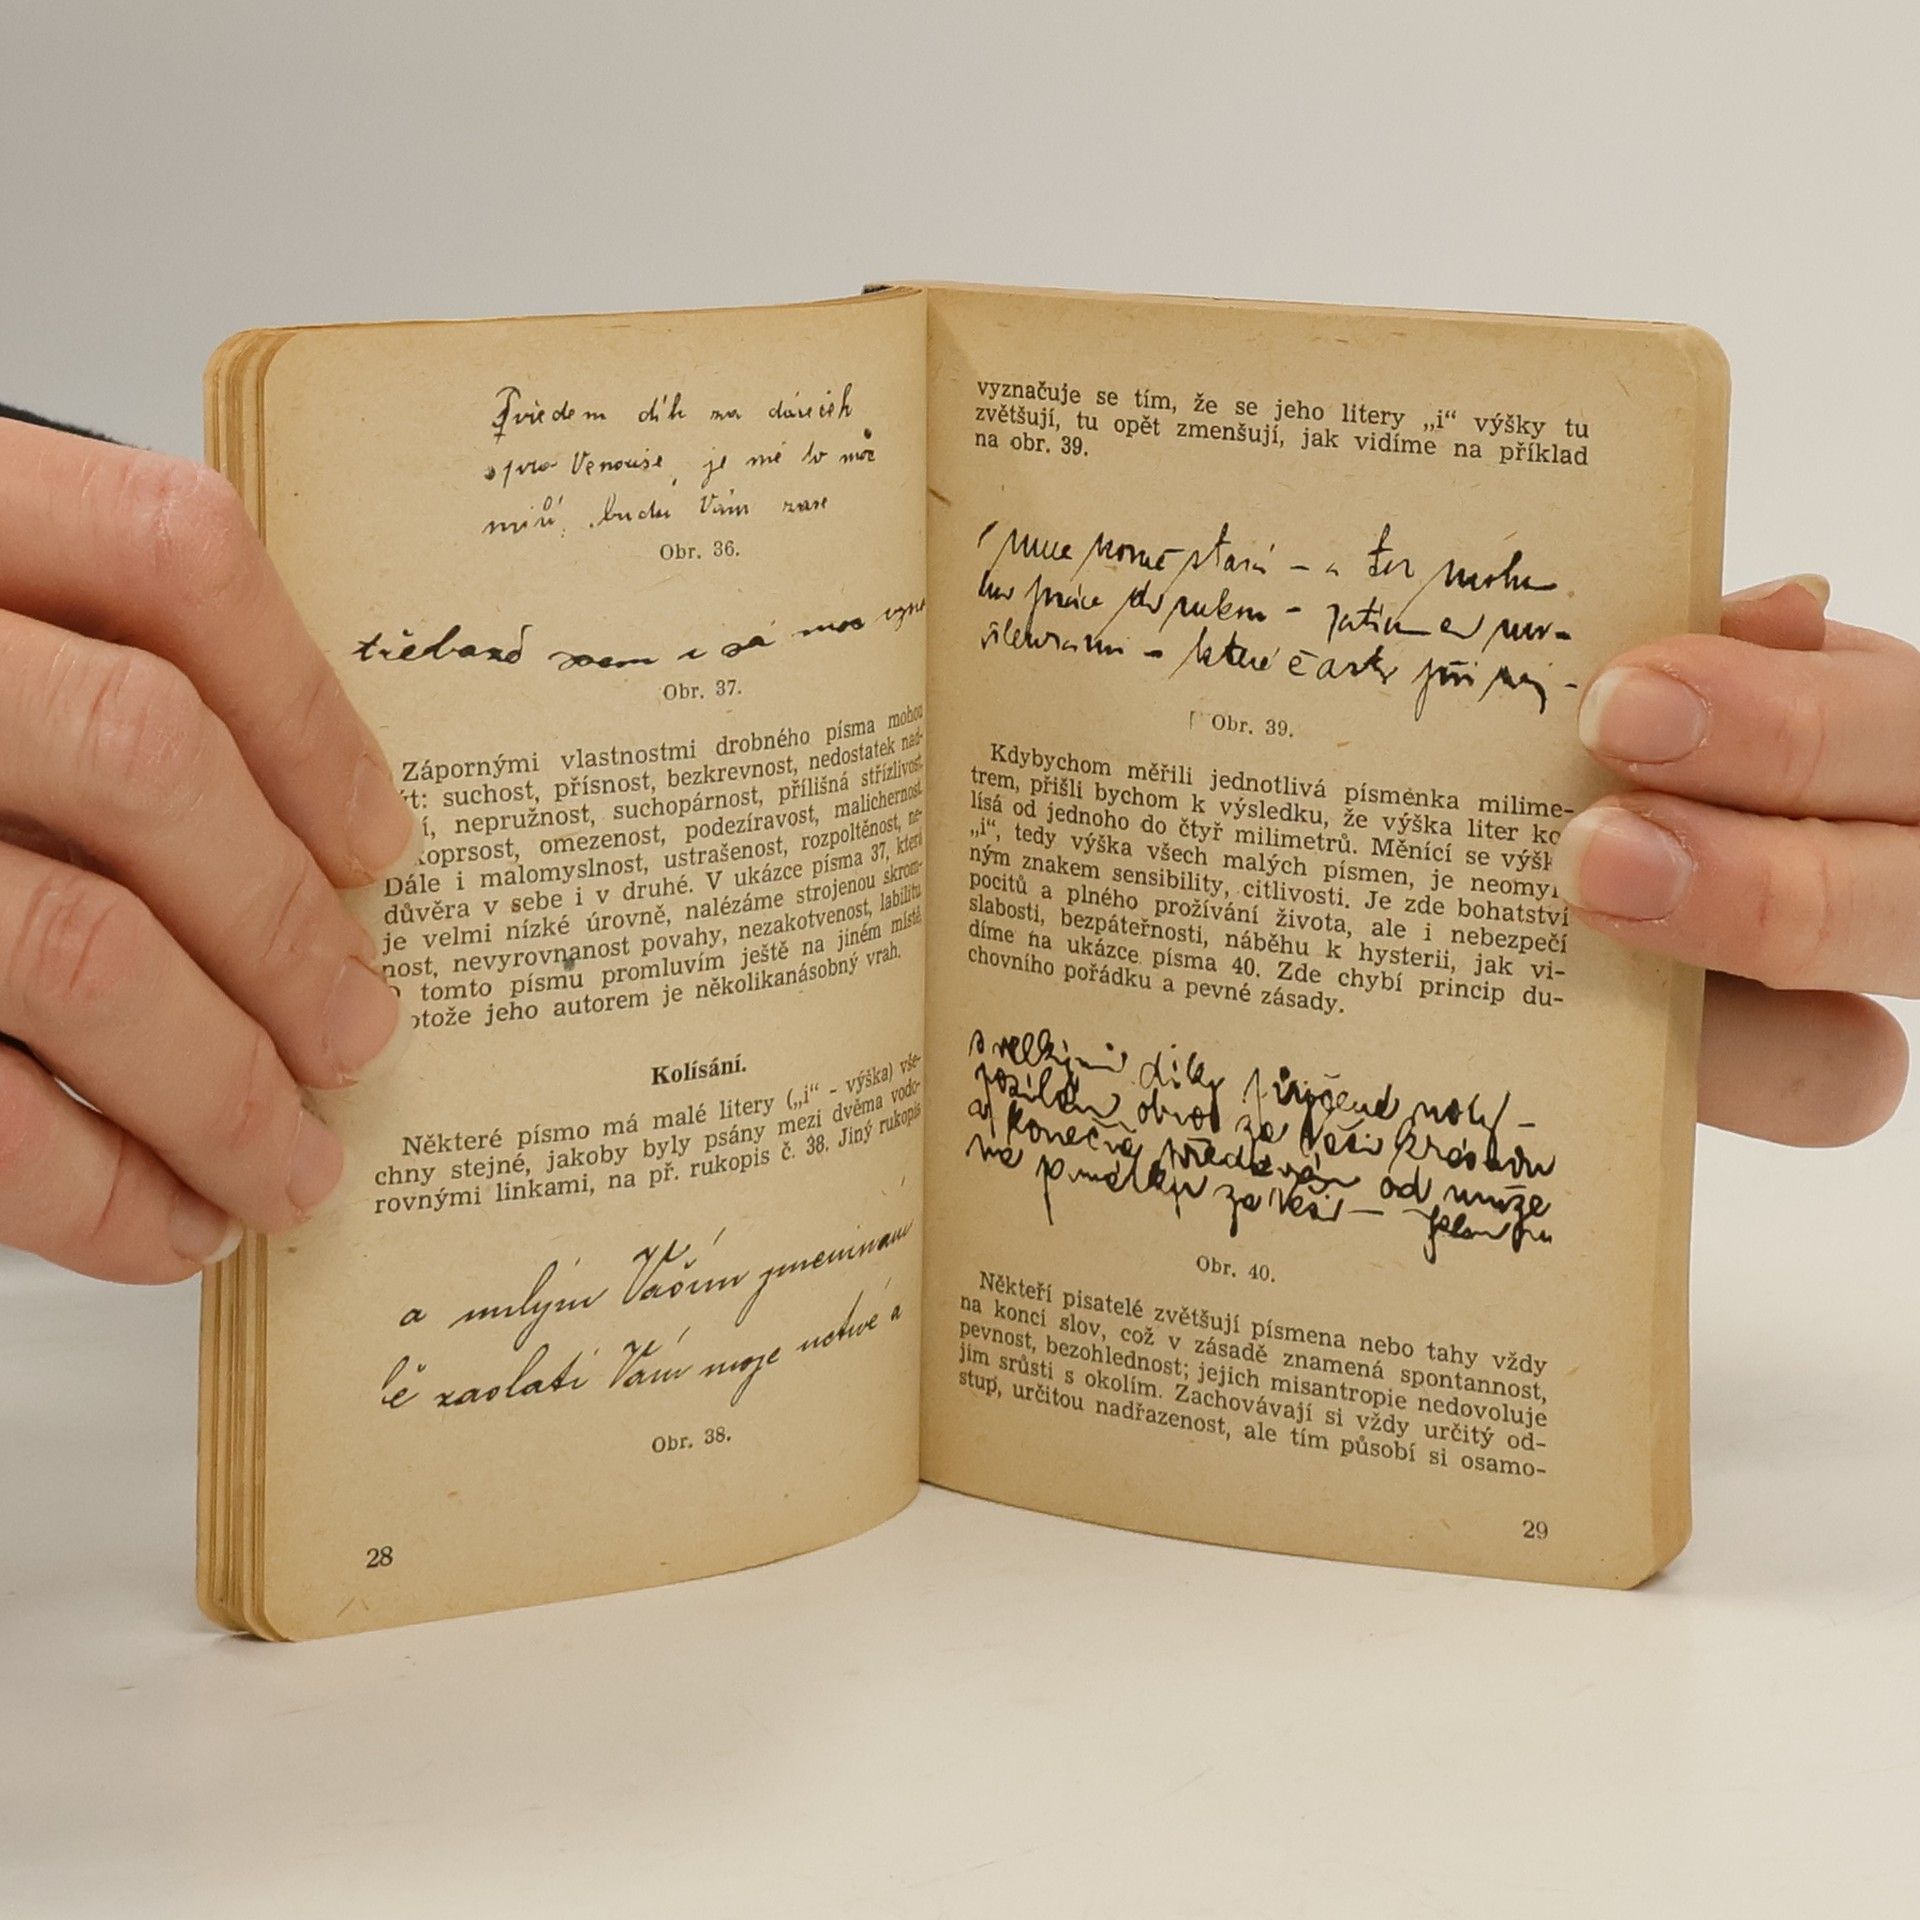 Předem dík za dáreček
pro Venouše, je mé to moc
milé, budu Vám zase
Obr. 36.
třebaže jsem i sá moc
Obr. 37.
Zápornými vlastnostmi drobného písma mohou
suchost, přísnost, bezkrevnost, nedostatek nad-
nepružnost, suchopárnost, přílišná střízlivost,
omezenost, podezíravost, malichernost.
Dále i malomyslnost, ustrašenost, rozpoltěnost, ne-
důvěra v sebe i v druhé. V ukázce písma 37, která
je velmi nízké úrovně, nalézáme strojenou skrom-
nost, nevyrovnanost povahy, nezakotvenost, labilitu
tomto písmu promluvím ještě na jiném místě,
jeho autorem je několikanásobný vrah.
Kolísání.
Některé písmo má malé litery („i“ - výška) vše-
chny stejné, jakoby byly psány mezi dvěma vodo-
rovnými linkami, na př. rukopis č. 38. Jiný rukopis
a milým Vašim jmeninam
zaslati Vám moje uctivé a
Obr. 38.
28
vyznačuje se tím, že se jeho litery „i“ výšky tu
zvětšují, tu opět zmenšují, jak vidíme na příklad
na obr. 39.
stará – a
práce –
– které části při
Obr. 39.
Kdybychom měřili jednotlivá písmenka milime-
trem, přišli bychom k výsledku, že výška liter ko
lísá od jednoho do čtyř milimetrů. Měnící se
„i“, tedy výška všech malých písmen, je
ným znakem sensibility, citlivosti. Je zde bohatství
pocitů a plného prožívání života, ale i nebezpečí
slabosti, bezpáteřnosti, náběhu k hysterii, jak vi-
díme na ukázce písma 40. Zde chybí princip du-
chovního pořádku a pevné zásady.
s velkými díky půjčené noty –
posílám obraz za Vaši krásnou
a konečně
na památku za Vaši –
Obr. 40.
Někteří pisatelé zvětšují písmena nebo tahy vždy
na konci slov, což v zásadě znamená spontannost,
pevnost, bezohlednost; jejich misantropie nedovoluje
jim srůsti s okolím. Zachovávají si vždy určitý od-
stup, určitou nadřazenost, ale tím působí si osamo-
29